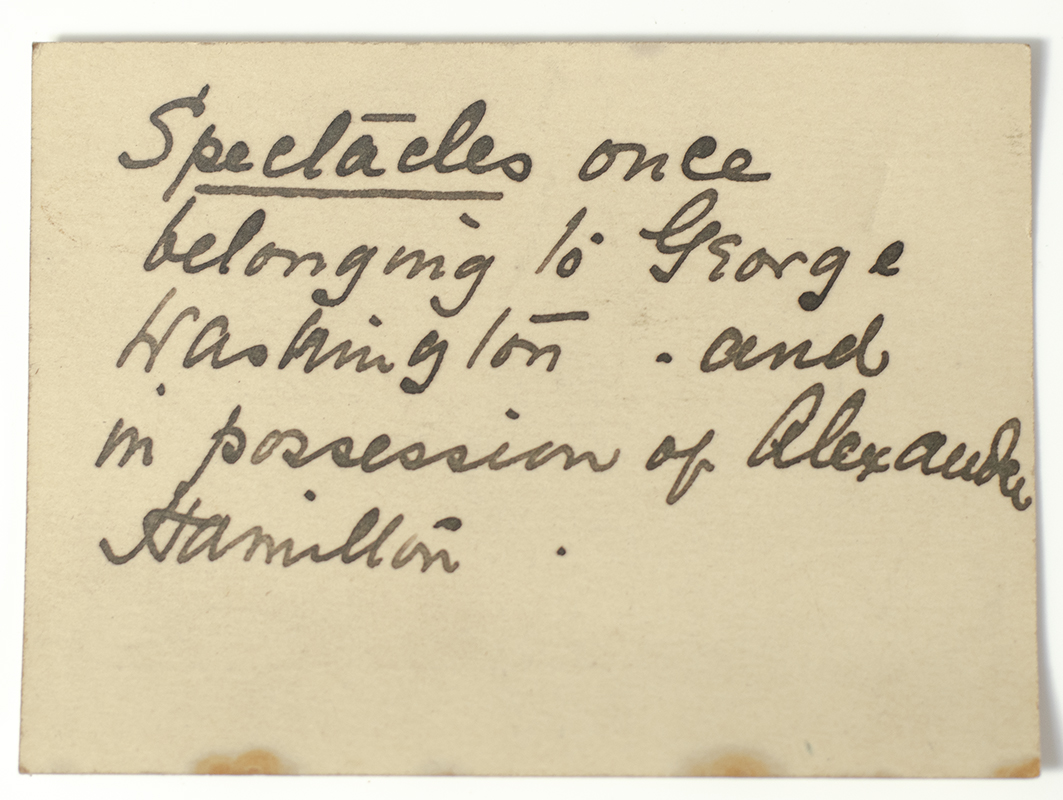 Spectacles once
belonging to George
Washington . and
in possession of Alexander
Hamilton .